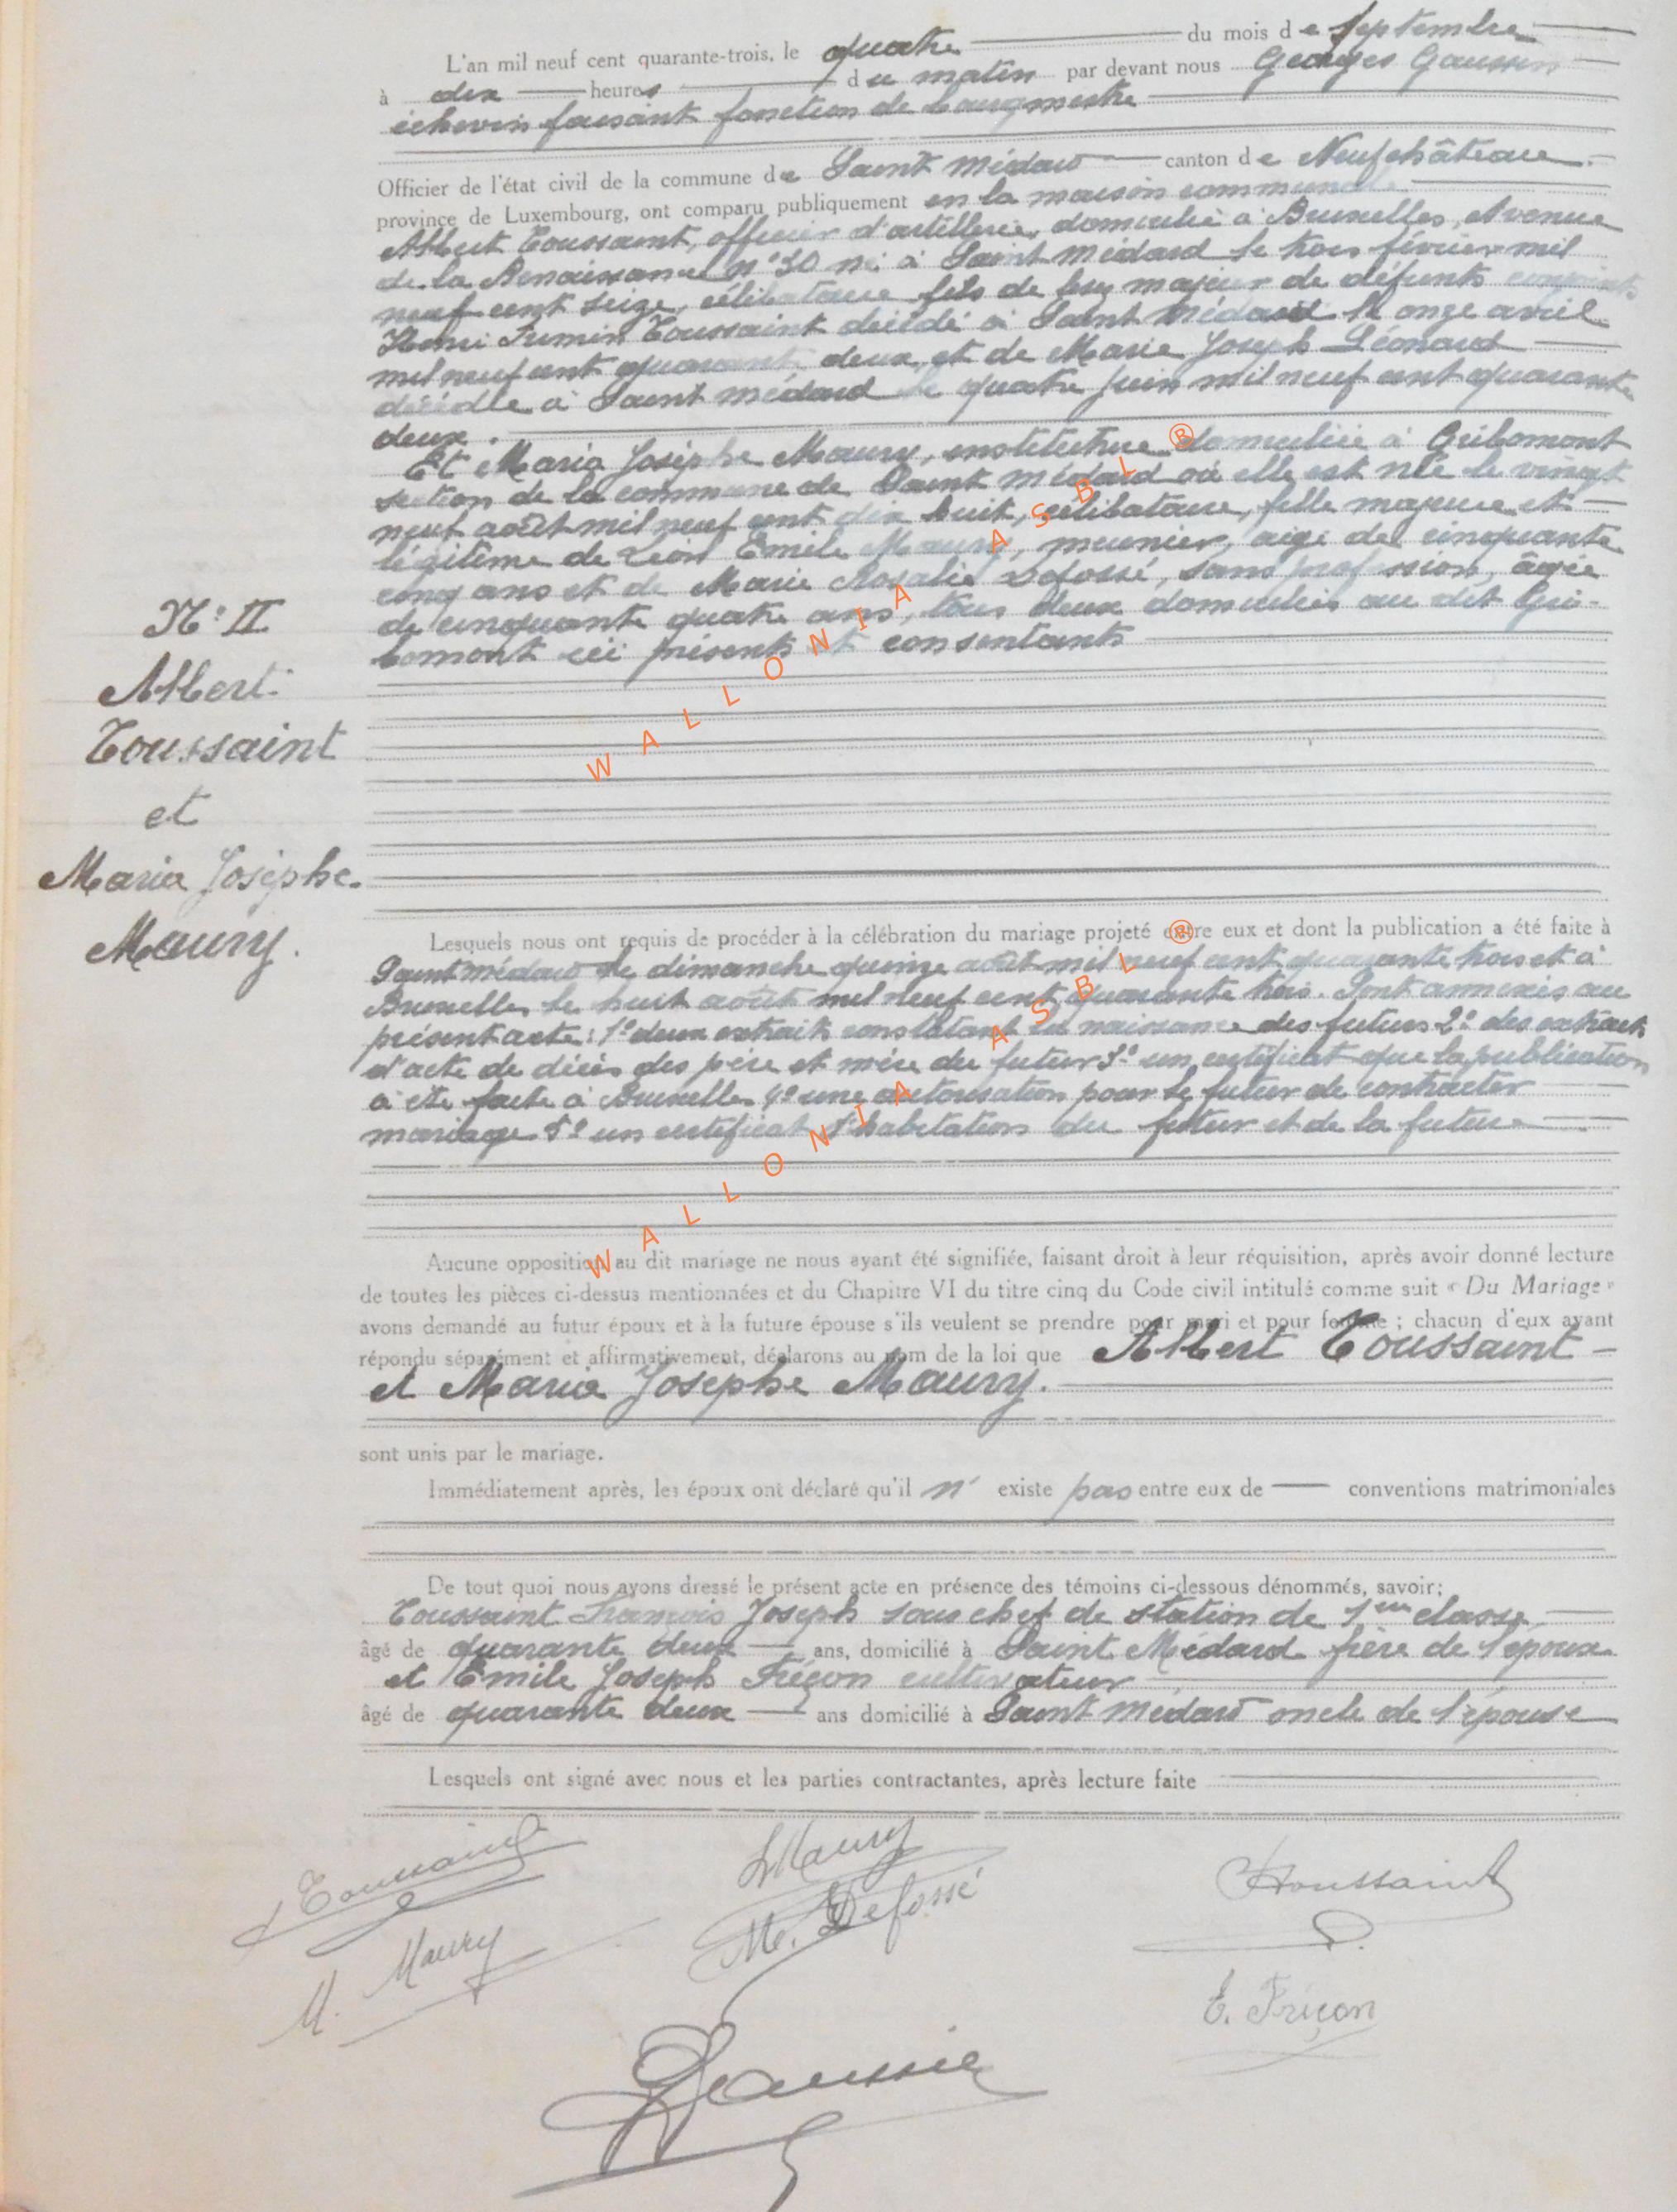 L'an mil neuf cent quarante-trois, le quatre du mois de Septembre
à dix heures du matin par devant nous Georges Gaussin
échevin faisant fonction de bourgmestre
Officier de l'état civil de la commune de Saint Médard canton de Neufchâteau.
province de Luxembourg, ont comparu publiquement en la maison communale
Albert Toussaint, officier d'artillerie, domicilié à Bruxelles, Avenue
de la Renaissance n° 30 né à Saint Médard le trois février mil
neuf cent seize, célibataire fils de feu majeur de défunts conjoints
Henri Firmin Toussaint décédé à Saint Médard le onze avril
mil neuf cent quarante deux et de Marie Joseph Léonard
décédée à Saint Médard le quatre juin mil neuf cent quarante
deux.
Et Maria Josèphe Maury, institutrice domiciliée à Gribomont
section de la commune de Saint Médard où elle est née le vingt
neuf août mil neuf cent dix huit, célibataire, fille majeure et
légitime de Léon Emile Maury, meunier, âgé de cinquante
cinq ans et de Marie Rosalie Defossé, sans profession, âgée
de cinquante quatre ans, tous deux domiciliés au dit Gri-
bomont ici présents et consentants
N° II
Albert
Toussaint
et
Maria Josèphe
Maury.
WALLONIA ASBL ®
Lesquels nous ont requis de procéder à la célébration du mariage projeté entre eux et dont la publication a été faite à
Saint Médard le dimanche quinze août mil neuf cent quarante trois et à
Bruxelles le huit août mil neuf cent quarante trois. Sont annexés au
présent acte : 1° deux extraits constatant la naissance des futurs 2° des extraits
d'acte de décès des père et mère du futur 3° un certificat que la publication
a été faite à Bruxelles 4° une autorisation pour le futur de contracter
mariage 5° un certificat d'habitation du futur et de la future
WALLONIA ASBL ®
Aucune opposition au dit mariage ne nous ayant été signifiée, faisant droit à leur réquisition, après avoir donné lecture
de toutes les pièces ci-dessus mentionnées et du Chapitre VI du titre cinq du Code civil intitulé comme suit « Du Mariage »
avons demandé au futur époux et à la future épouse s'ils veulent se prendre pour mari et pour femme ; chacun d'eux ayant
répondu séparément et affirmativement, déclarons au nom de la loi que Albert Toussaint
et Maria Josephe Maury.
sont unis par le mariage.
Immédiatement après, les époux ont déclaré qu'il n' existe pas entre eux de conventions matrimoniales
De tout quoi nous avons dressé le présent acte en présence des témoins ci-dessous dénommés, savoir:
Toussaint François Joseph sous chef de station de 1ère classe
âgé de quarante deux ans, domicilié à Saint Médard frère de l'époux
et Emile Joseph Friçon cultivateur
âgé de quarante deux ans domicilié à Saint Médard oncle de l'épouse
Lesquels ont signé avec nous et les parties contractantes, après lecture faite
Toussaint
LMaury
Toussaint
M. Maury
M. Defossé
E. Friçon
Gaussin